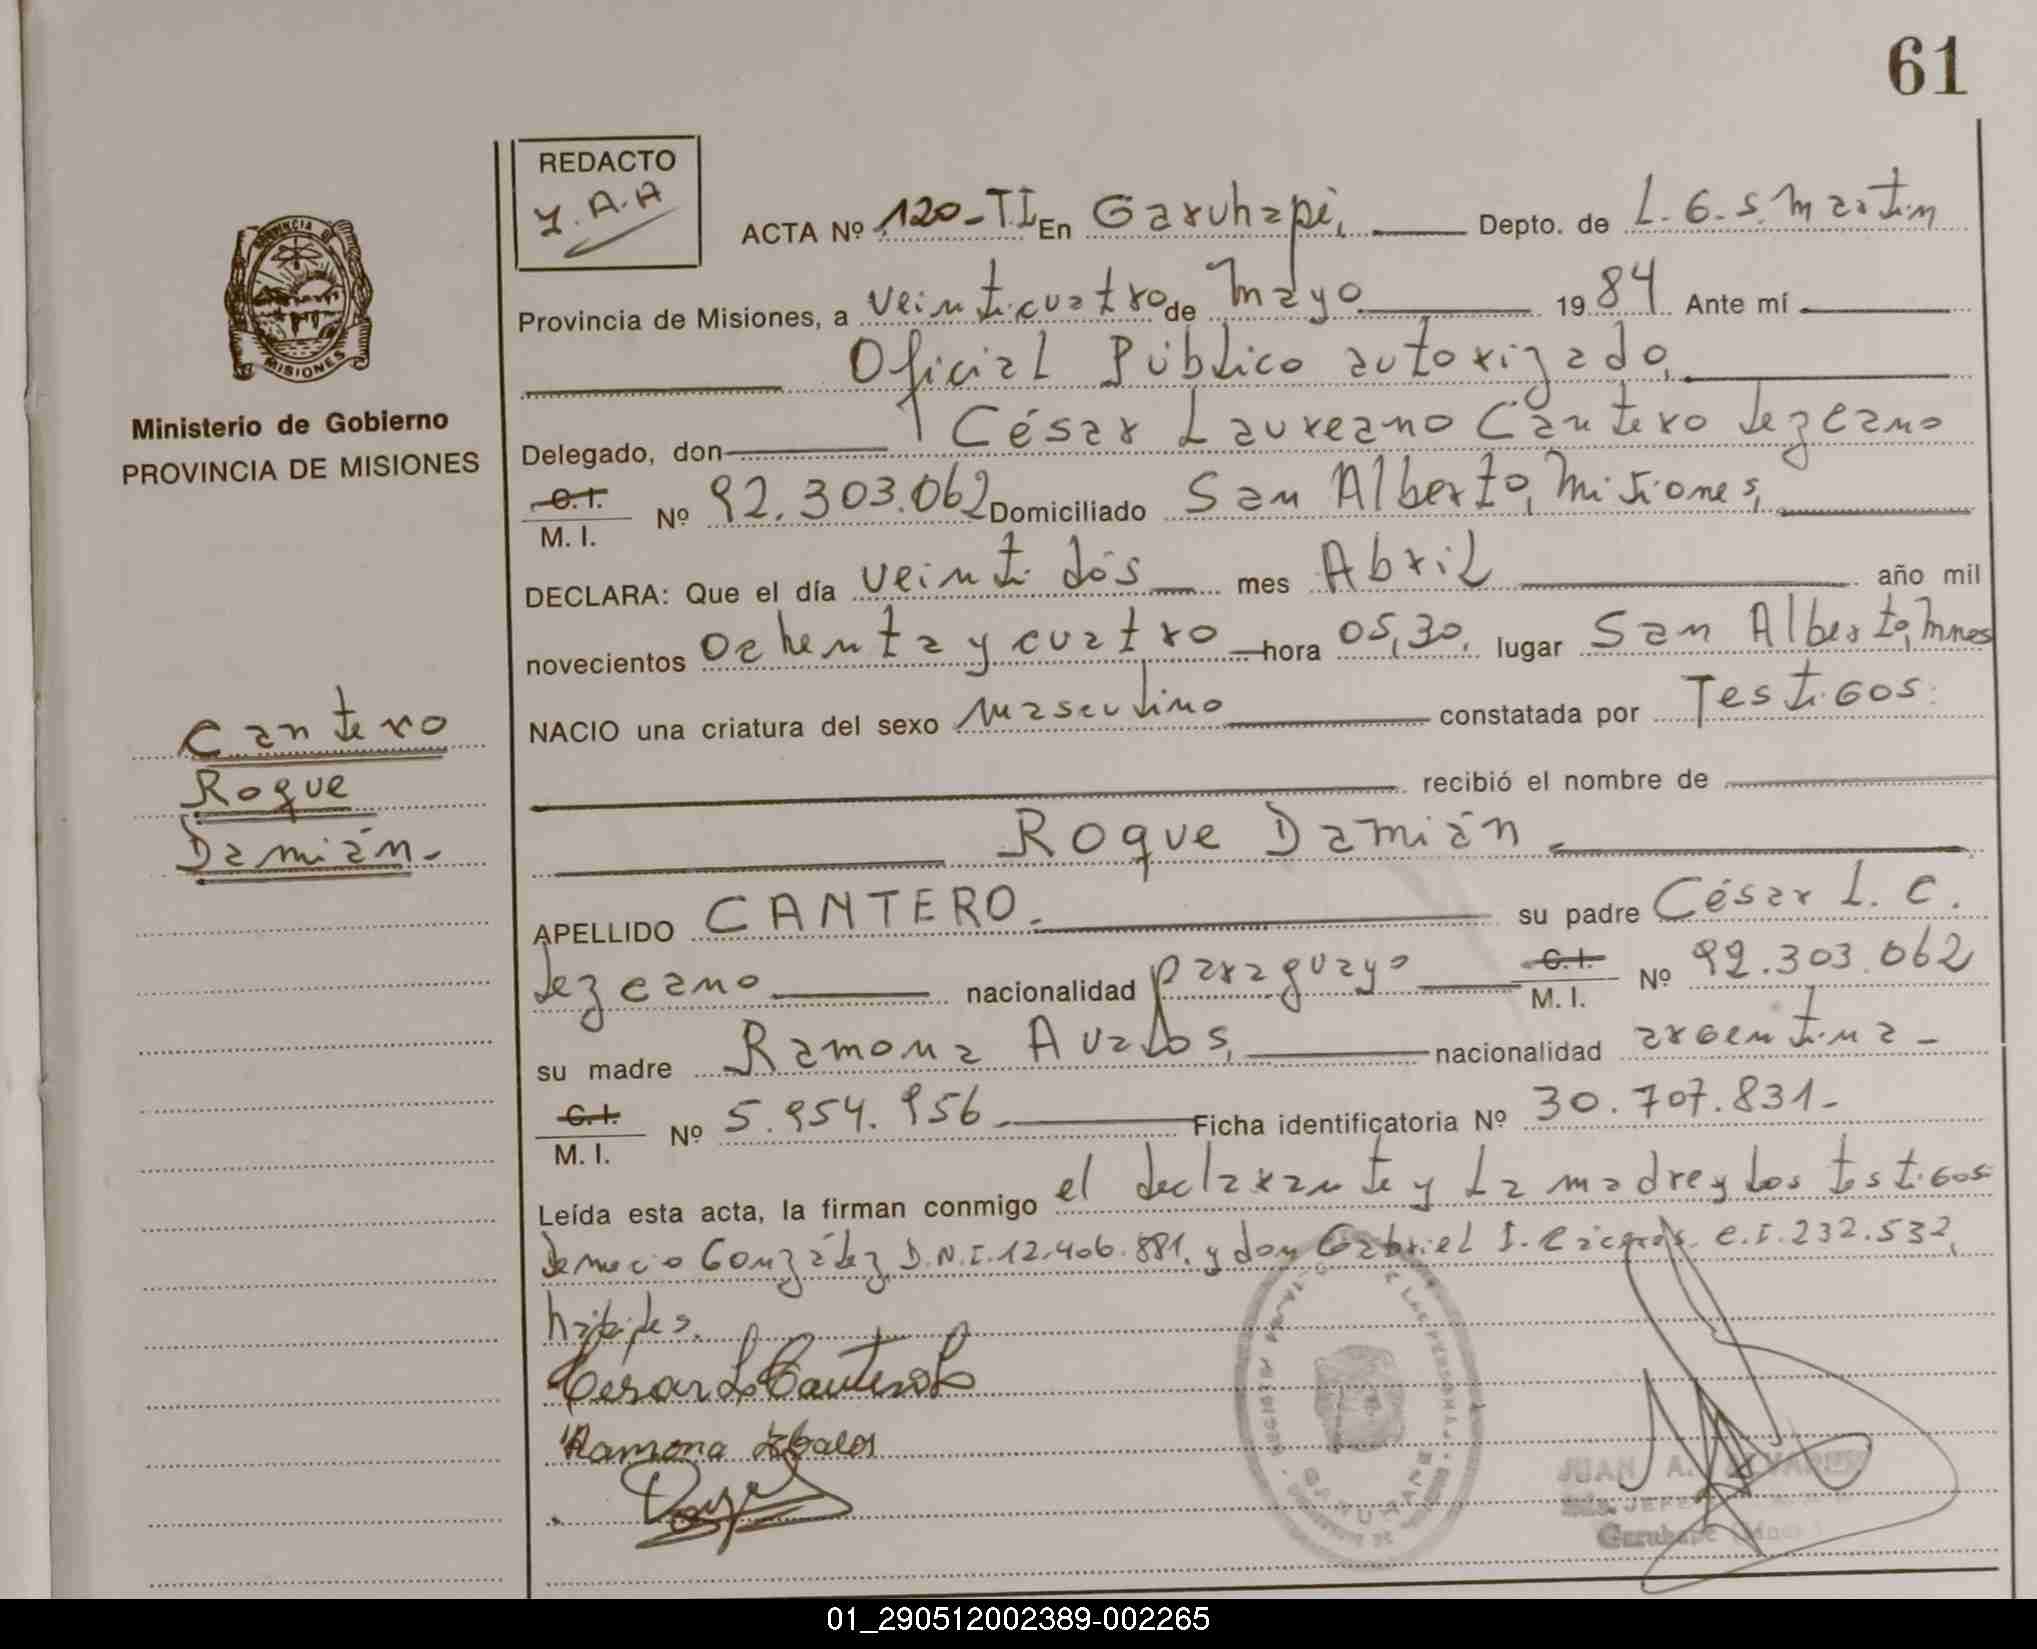 61
REDACTO
J.A.A
ACTA Nº 120-TI En Garuhapé, Depto. de L.G.S.Martin
Provincia de Misiones, a veinticuatro de mayo 1984 Ante mí
Oficial Público autorizado,
Delegado, don César Laureano Cantero Lezcano
C.I.
M. I. Nº 92.303.062 Domiciliado San Alberto, Misiones,
DECLARA: Que el día veintidós mes Abril año mil
novecientos Ochenta y cuatro hora 05,30, lugar San Alberto, Mnes
NACIO una criatura del sexo masculino constatada por Testigos:
recibió el nombre de
Roque Damián
APELLIDO CANTERO. su padre César L. C.
Lezcano nacionalidad paraguayo C.I.
M. I. Nº 92.303.062
su madre Ramona Avalos, nacionalidad argentina -
C.I.
M. I. Nº 5.954.956 Ficha identificatoria Nº 30.707.831-
Leída esta acta, la firman conmigo el declarante y la madre y los testigos
González D.N.I. 12.406.881. y don Gabriel I. Cáceres C.I. 232.532,
hábiles.
Cesar L Cantero L
Ramona
PROVINCIA DE
MISIONES
Ministerio de Gobierno
PROVINCIA DE MISIONES
Cantero
Roque
Damián-
DE LAS PERSONAS
JUAN A.
JEFE
Garuhapé
01_290512002389-002265